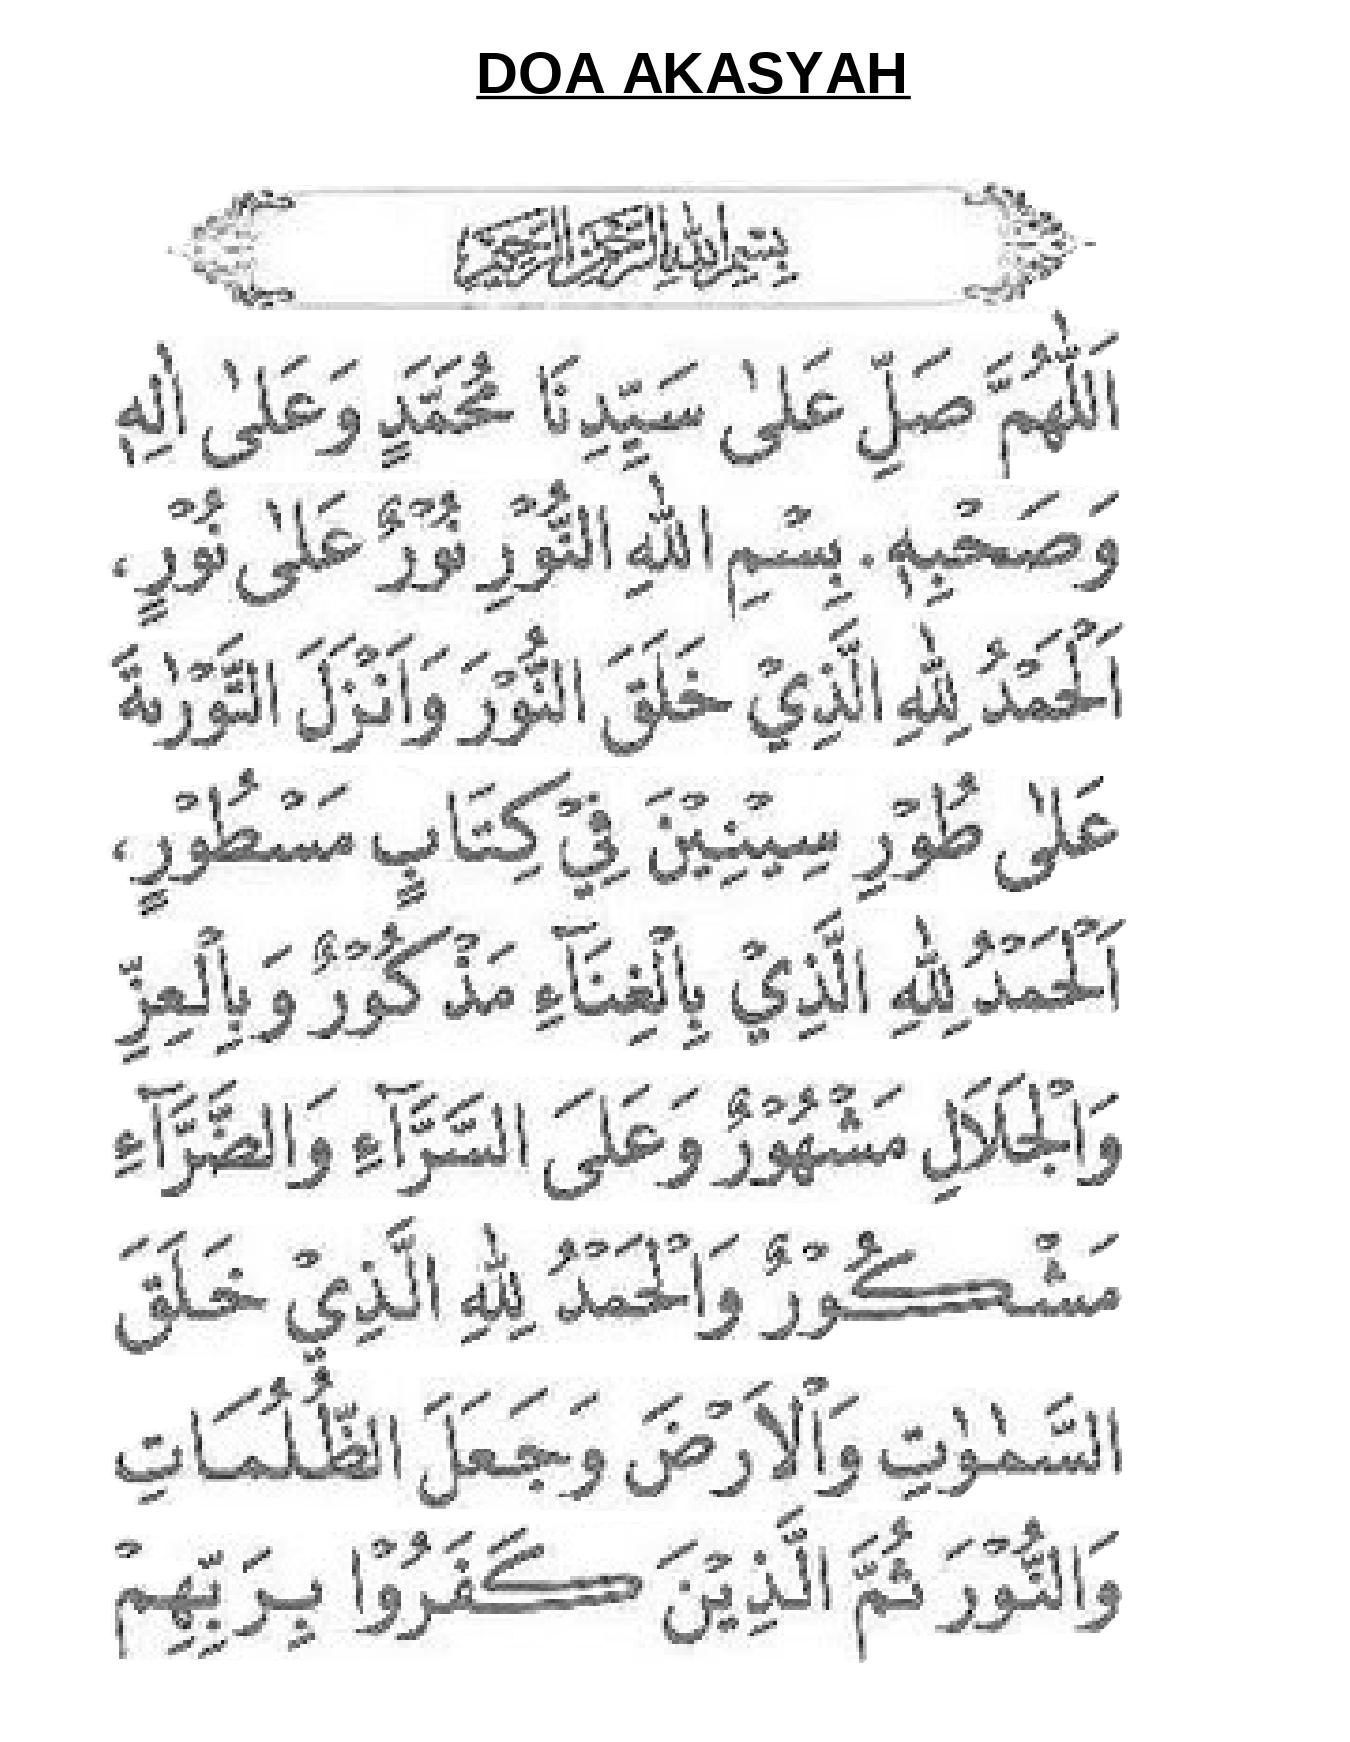 DOA AKASYAH
بِسْمِ اللهِ الرَّحْمٰنِ الرَّحِيْمِ
اَللّٰهُمَّ صَلِّ عَلٰى سَيِّدِنَا مُحَمَّدٍ وَعَلٰى اٰلِهٖ
وَصَحْبِهٖ. بِسْمِ اللّٰهِ النُّوْرِ نُوْرٌ عَلٰى نُوْرٍ،
اَلْحَمْدُ لِلّٰهِ الَّذِيْ خَلَقَ النُّوْرَ وَاَنْزَلَ التَّوْرٰىةَ
عَلٰى طُوْرِ سِيْنِيْنَ فِيْ كِتَابٍ مَسْطُوْرٍ،
اَلْحَمْدُ لِلّٰهِ الَّذِيْ بِالْغِنَآءِ مَذْكُوْرٌ وَبِالْعِزِّ
وَالْجَلَالِ مَشْهُوْرٌ وَعَلَى السَّرَّآءِ وَالضَّرَّآءِ
مَشْكُوْرٌ وَالْحَمْدُ لِلّٰهِ الَّذِيْ خَلَقَ
السَّمٰوٰتِ وَالْاَرْضَ وَجَعَلَ الظُّلُمَاتِ
وَالنُّوْرَ ثُمَّ الَّذِيْنَ كَفَرُوْا بِرَبِّهِمْ